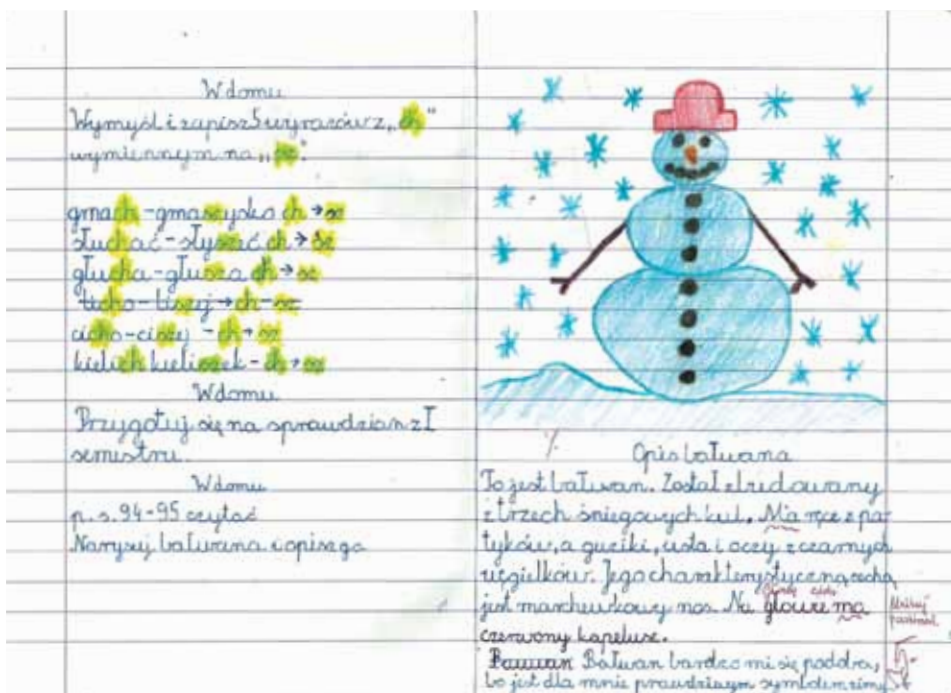 W domu
Wymyśl i zapisz 5 wyrazów z „ch"
wymiennym na „sz".
gmach - gmaszysko ch → sz
słuchać - słyszeć ch → sz
głucha - głusza ch → sz
ticho - tiszej → ch - sz
cicho - ciszej - ch → sz
kielich kieliszek - ch → sz
W domu
Przygotuj się na sprawdzian z I
semestru.
W domu
p. s. 94-95 czytać
Narysuj bałwana i opisz go
Opis bałwana
To jest bałwan. Został zbudowany
z trzech śniegowych kul. Ma ręce z pa-
tyków, a guziki, usta i oczy z czarnych
węgielków. Jego charakterystyczną cechą
jest marchewkowy nos. Na głowie ma
czerwony kapelusz.
Bałwan bardzo mi się podoba,
bo jest dla mnie prawdziwym symbolem zimy